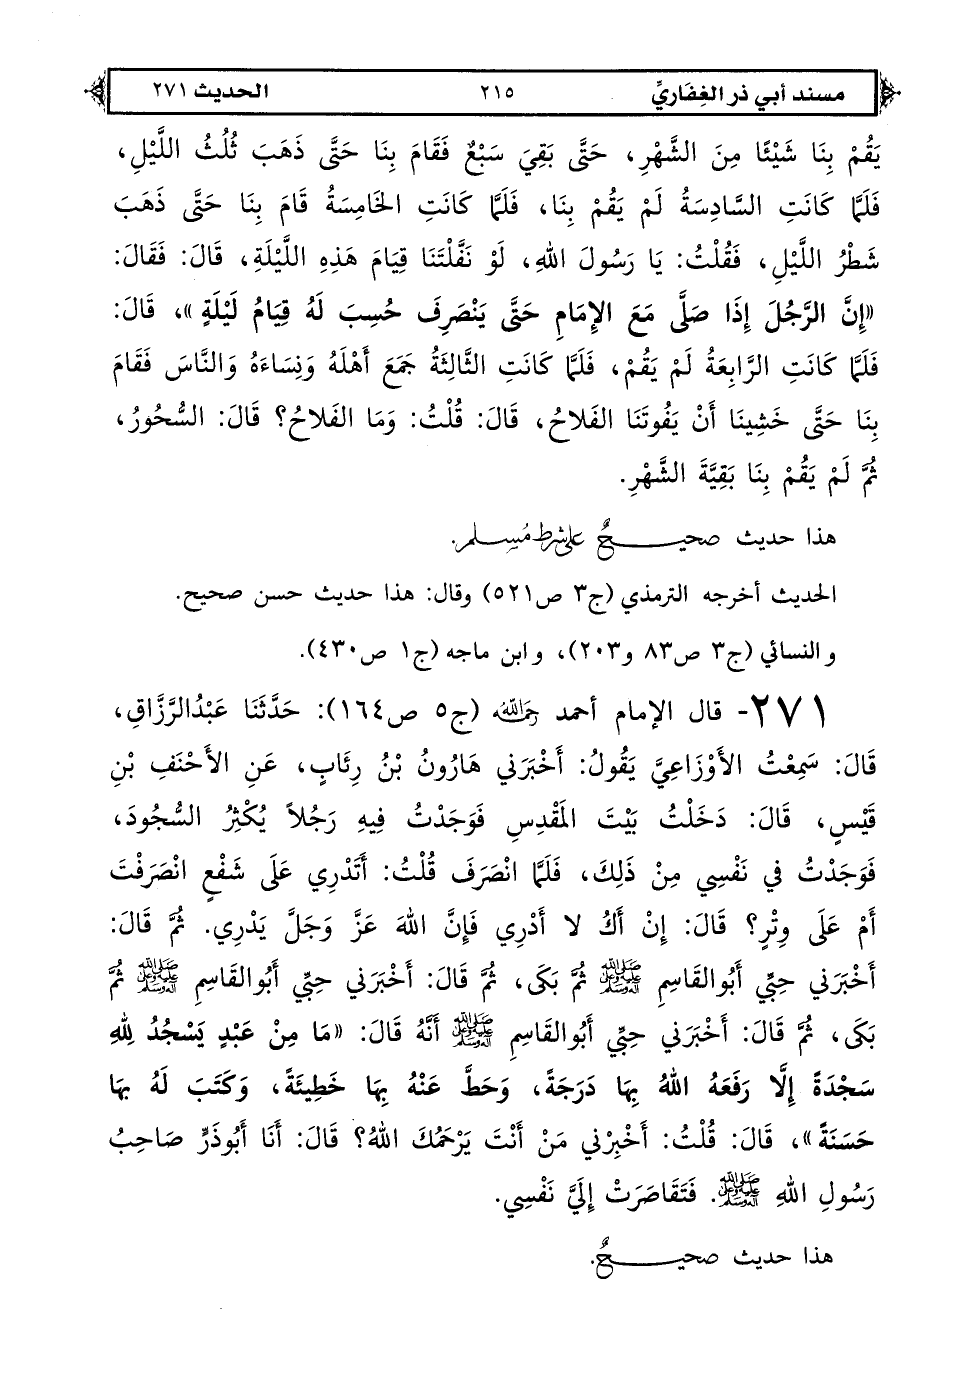 مسند أبي ذر الغِفَاريِّ ٢١٥ الحديث ٢٧١
يَقُمْ بِنَا شَيْئًا مِنَ الشَّهْرِ، حَتَّى بَقِيَ سَبْعٌ فَقَامَ بِنَا حَتَّى ذَهَبَ ثُلُثُ اللَّيْلِ،
فَلَمَّا كَانَتِ السَّادِسَةُ لَمْ يَقُمْ بِنَا، فَلَمَّا كَانَتِ الخَامِسَةُ قَامَ بِنَا حَتَّى ذَهَبَ
شَطْرُ اللَّيْلِ، فَقُلْتُ: يَا رَسُولَ اللهِ، لَوْ نَفَّلْتَنَا قِيَامَ هَذِهِ اللَّيْلَةِ، قَالَ: فَقَالَ:
«إِنَّ الرَّجُلَ إِذَا صَلَّى مَعَ الإِمَامِ حَتَّى يَنْصَرِفَ حُسِبَ لَهُ قِيَامُ لَيْلَةٍ»، قَالَ:
فَلَمَّا كَانَتِ الرَّابِعَةُ لَمْ يَقُمْ، فَلَمَّا كَانَتِ الثَّالِثَةُ جَمَعَ أَهْلَهُ وَنِسَاءَهُ وَالنَّاسَ فَقَامَ
بِنَا حَتَّى خَشِينَا أَنْ يَفُوتَنَا الفَلَاحُ، قَالَ: قُلْتُ: وَمَا الفَلَاحُ؟ قَالَ: السُّحُورُ،
ثُمَّ لَمْ يَقُمْ بِنَا بَقِيَّةَ الشَّهْرِ.
هذا حديث صحيحٌ على شرط مُسِلم.
الحديث أخرجه الترمذي (ج٣ ص٥٢١) وقال: هذا حديث حسن صحيح.
والنسائي (ج٣ ص٨٣ و٢٠٣)، وابن ماجه (ج١ ص٤٣٠).
٢٧١- قال الإمام أحمد رحمه الله (ج٥ ص١٦٤): حَدَّثَنَا عَبْدُالرَّزَّاقِ،
قَالَ: سَمِعْتُ الأَوْزَاعِيَّ يَقُولُ: أَخْبَرَنِي هَارُونُ بْنُ رِئَابٍ، عَنِ الأَحْنَفِ بْنِ
قَيْسٍ، قَالَ: دَخَلْتُ بَيْتَ المَقْدِسِ فَوَجَدْتُ فِيهِ رَجُلاً يُكْثِرُ السُّجُودَ،
فَوَجَدْتُ فِي نَفْسِي مِنْ ذَلِكَ، فَلَمَّا انْصَرَفَ قُلْتُ: أَتَدْرِي عَلَى شَفْعٍ انْصَرَفْتَ
أَمْ عَلَى وِتْرٍ؟ قَالَ: إِنْ أَكُ لا أَدْرِي فَإِنَّ اللهَ عَزَّ وَجَلَّ يَدْرِي. ثُمَّ قَالَ:
أَخْبَرَنِي حِبِّي أَبُوالقَاسِمِ ﷺ ثُمَّ بَكَى، ثُمَّ قَالَ: أَخْبَرَنِي حِبِّي أَبُوالقَاسِمِ ﷺ ثُمَّ
بَكَى، ثُمَّ قَالَ: أَخْبَرَنِي حِبِّي أَبُوالقَاسِمِ ﷺ أَنَّهُ قَالَ: «مَا مِنْ عَبْدٍ يَسْجُدُ لِلهِ
سَجْدَةً إِلَّا رَفَعَهُ اللهُ بِهَا دَرَجَةً، وَحَطَّ عَنْهُ بِهَا خَطِيئَةً، وَكَتَبَ لَهُ بِهَا
حَسَنَةً»، قَالَ: قُلْتُ: أَخْبِرْنِي مَنْ أَنْتَ يَرْحَمُكَ اللهُ؟ قَالَ: أَنَا أَبُوذَرٍّ صَاحِبُ
رَسُولِ اللهِ ﷺ. فَتَقَاصَرَتْ إِلَيَّ نَفْسِي.
هذا حديث صحيحٌ.